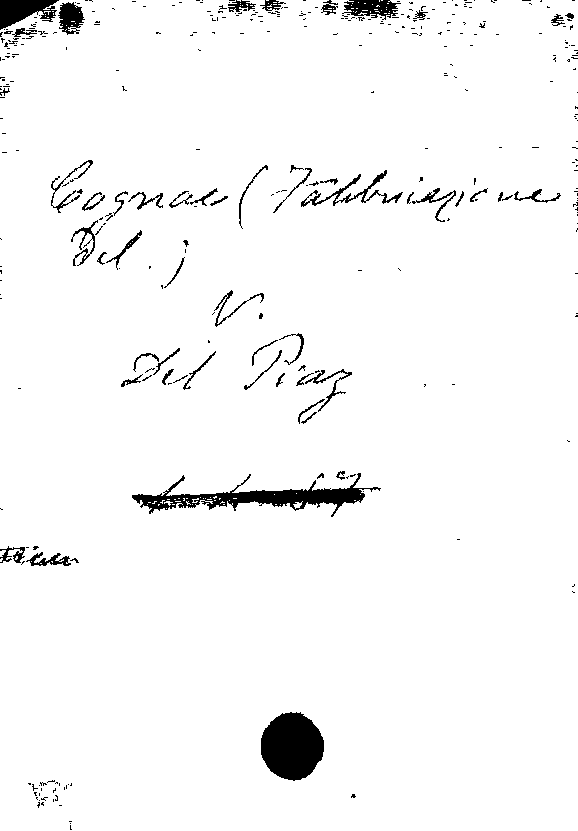 Cognac (Fabbricazione
Del.)
V.
Del Piaz